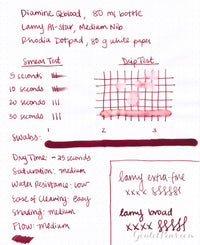 Diamine Oxblood, 80 ml bottle
Lamy Al-Star, Medium Nib
Rhodia Dotpad, 80 g white paper
Smear Test
Drip Test
5 seconds
10 seconds
20 seconds
30 seconds
1 2 3
Swabs:
Dry Time: ~25 seconds
Saturation: Medium
Water Resistance: Low
Ease of Cleaning: Easy
Shading: Medium
Flow: Medium
lamy extra-fine
xxxx
lamy broad
xxxx